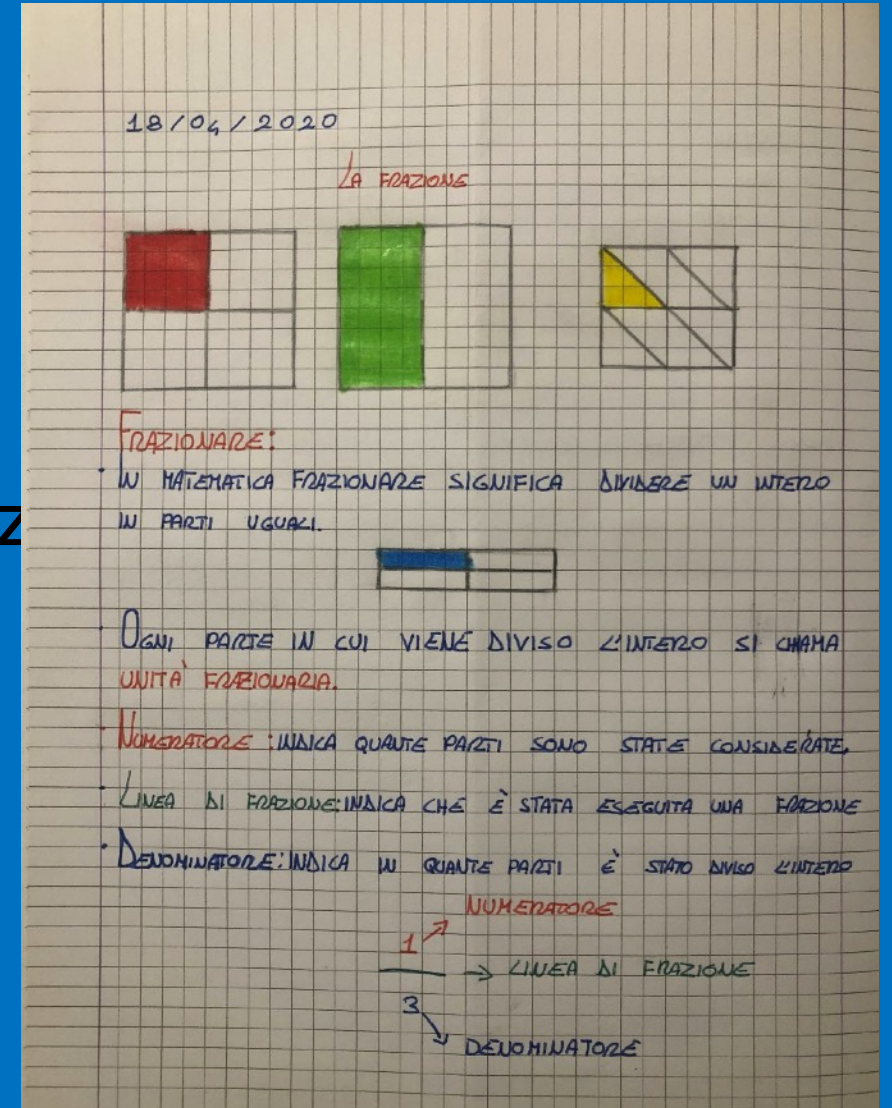 18/04/2020
LA FRAZIONE
FRAZIONARE:
IN MATEMATICA FRAZIONARE SIGNIFICA DIVIDERE UN INTERO
IN PARTI UGUALI.
Z
OGNI PARTE IN CUI VIENE DIVISO L'INTERO SI CHIAMA
UNITA' FRAZIONARIA.
NUMERATORE: INDICA QUANTE PARTI SONO STATE CONSIDERATE.
LINEA DI FRAZIONE: INDICA CHE È STATA ESEGUITA UNA FRAZIONE
DENOMINATORE: INDICA IN QUANTE PARTI È STATO DIVISO L'INTERO
NUMERATORE
1
LINEA DI FRAZIONE
3
DENOMINATORE